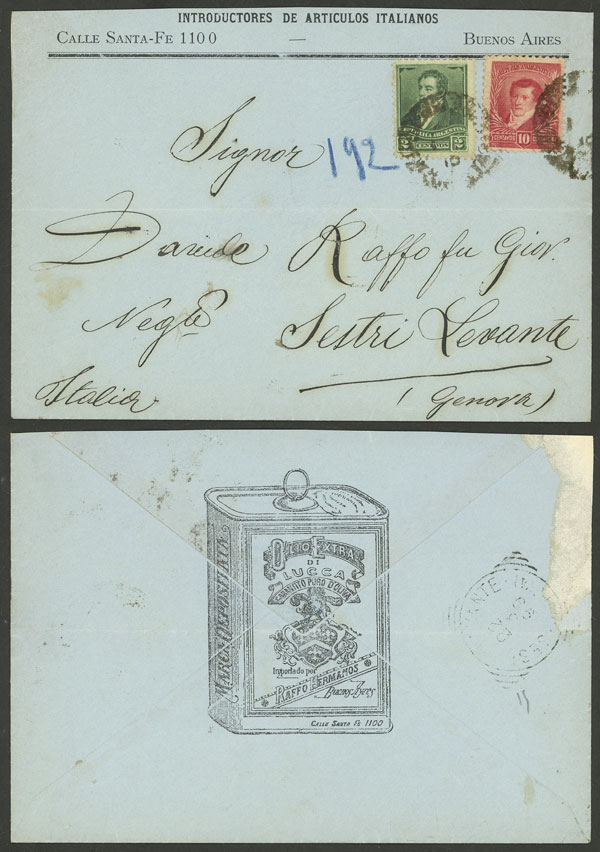 INTRODUCTORES DE ARTICULOS ITALIANOS
CALLE SANTA-FE 1100 — BUENOS AIRES
2 CENTAVOS 2
CENTAVOS 10
192
Signor
Davide Raffo fu Giov.
Negte
Sestri Levante
Italia (Genova)
OLIO EXTRA
DI
LUCCA
GARANTITO PURO D'OLIVA
MARCA DEPOSITATA
Importado por
RAFFO HERMANOS
Buenos Aires
CALLE SANTA FE 1100
15